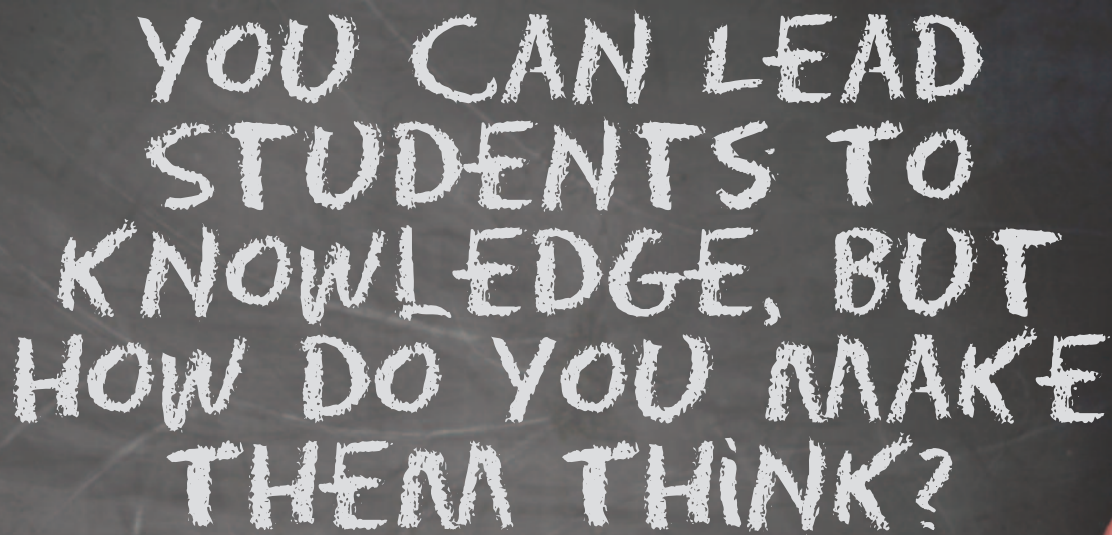 YOU CAN LEAD
STUDENTS TO
KNOWLEDGE, BUT
HOW DO YOU MAKE
THEM THiNK?